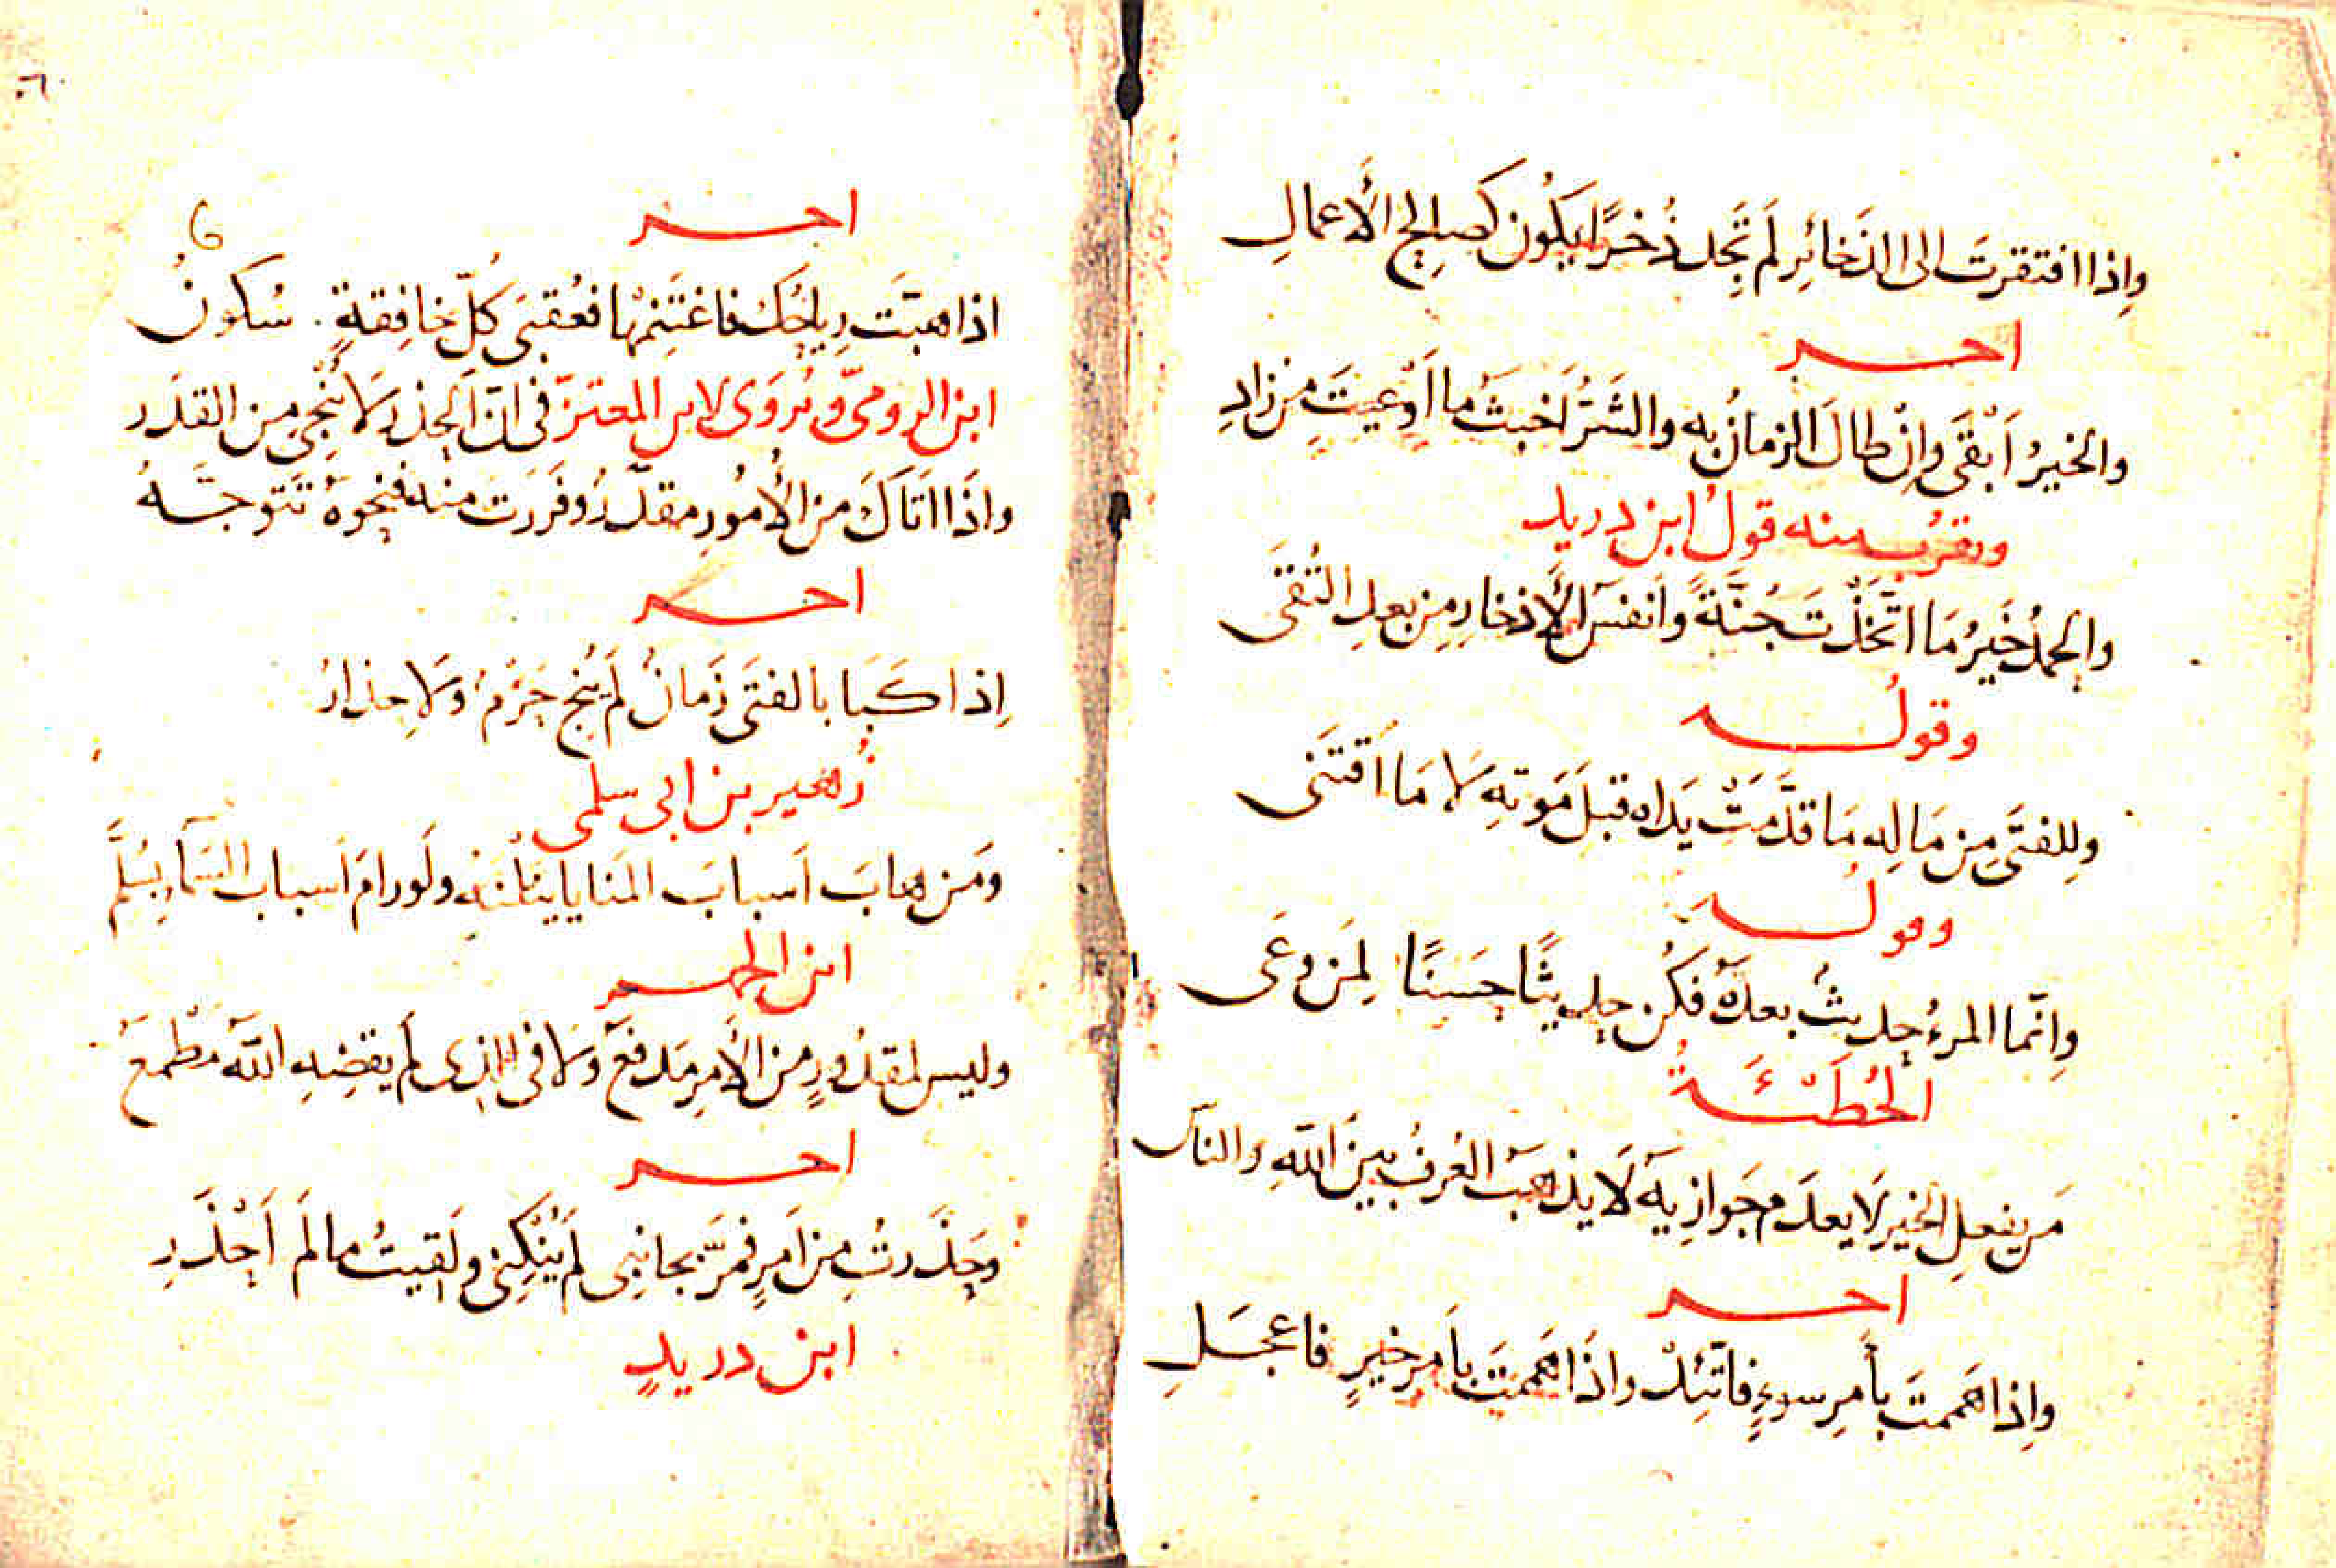 وإذا افتقرتَ الى الذَخائِرِ لَم تَجِد ذُخرًا يَكُون كَصالِحِ الأَعمالِ
اخر
والخيرُ أَبْقَى وإنْ طالَ الزمانُ به والشَرُّ أَخبَثُ ما أَوْعيتَ مِن زادِ
ويقرُب منه قولُ ابن دريد
والحمدُ خَيرُ مَا اتَّخَذْتَ جُنَّةً وأَنفَسُ الأَذخارِ مِن بعدِ التُّقَى
وقولُه
وللفتَى مِن مَالِه مَا قدَّمَتْ يَداه قبلَ مَوتِهِ لَا مَا اقتَنَى
وقولُه
وإنّما المرءُ حديثٌ بعدَهُ فكُن حديثًا حَسَنًا لِمَن وَعَى
الحُطَيْئَةُ
مَن يفعلِ الخيرَ لَا يعدَم جَوازِيَهُ لَا يذهَبُ العُرفُ بينَ اللهِ والناسِ
اخر
وإذا هَممتَ بأَمرِ سوءٍ فاتَّئِدْ واذَا هَممتَ بأَمرِ خيرٍ فاعجَلِ
٦٠
6
اخر
اذا هبَّت رِياحُكَ فاغتَنِمْها فعُقبَى كُلِّ خافِقةٍ سُكونُ
ابن الرومىّ ويُروَى لابن المعتزّ فى انّ الحِذرَ لَا يُنْجِى مِن القدَر
واذَا اتَاكَ من الأُمُورِ مقدَّرٌ وفَرَرتَ منه فنحوَهُ تَتَوجَّهُ
اخر
إذا كَبَا بالفتَى زَمانٌ لَم يُنجِ حَزْمٌ وَلَا حِذارُ
زُهير بن ابى سلمى
ومَن هابَ أَسبابَ المَنايا يَنَلْنَه ولَو رامَ أَسباب السَمآءِ بِسُلَّمِ
ابن الجهم
وليس لمقدُورٍ من الأَمرِ مَدفَعٌ وَلَا فى الذى لَم يقضِهِ اللهُ مَطْمعُ
اخر
وحَذَرتُ مِن أَمرٍ فمَرَّ بجانِبى لَم يُنْكِنى ولَقيتُ ما لَم أَحْذَرِ
ابن دريدٍ